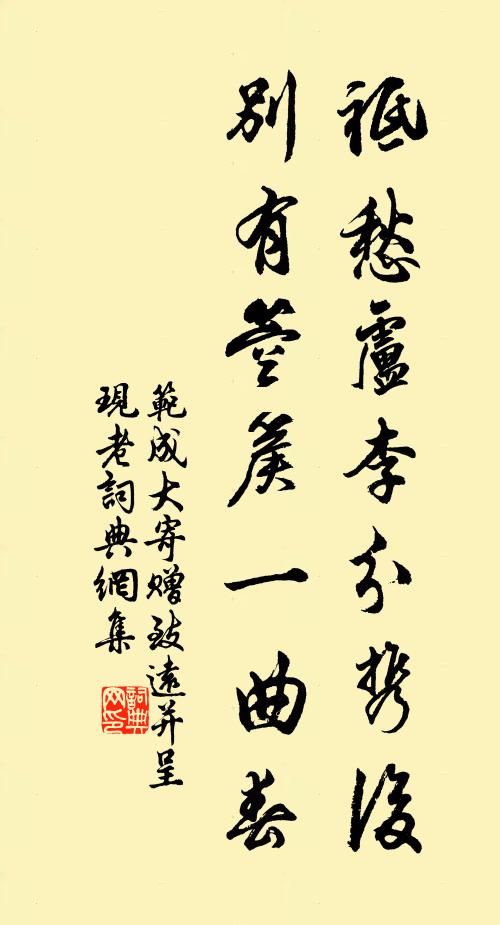 祗愁盧李分携後
別有箜篌一曲春
範成大寄赠致遠并呈
現老詞典網集
詞典
网印